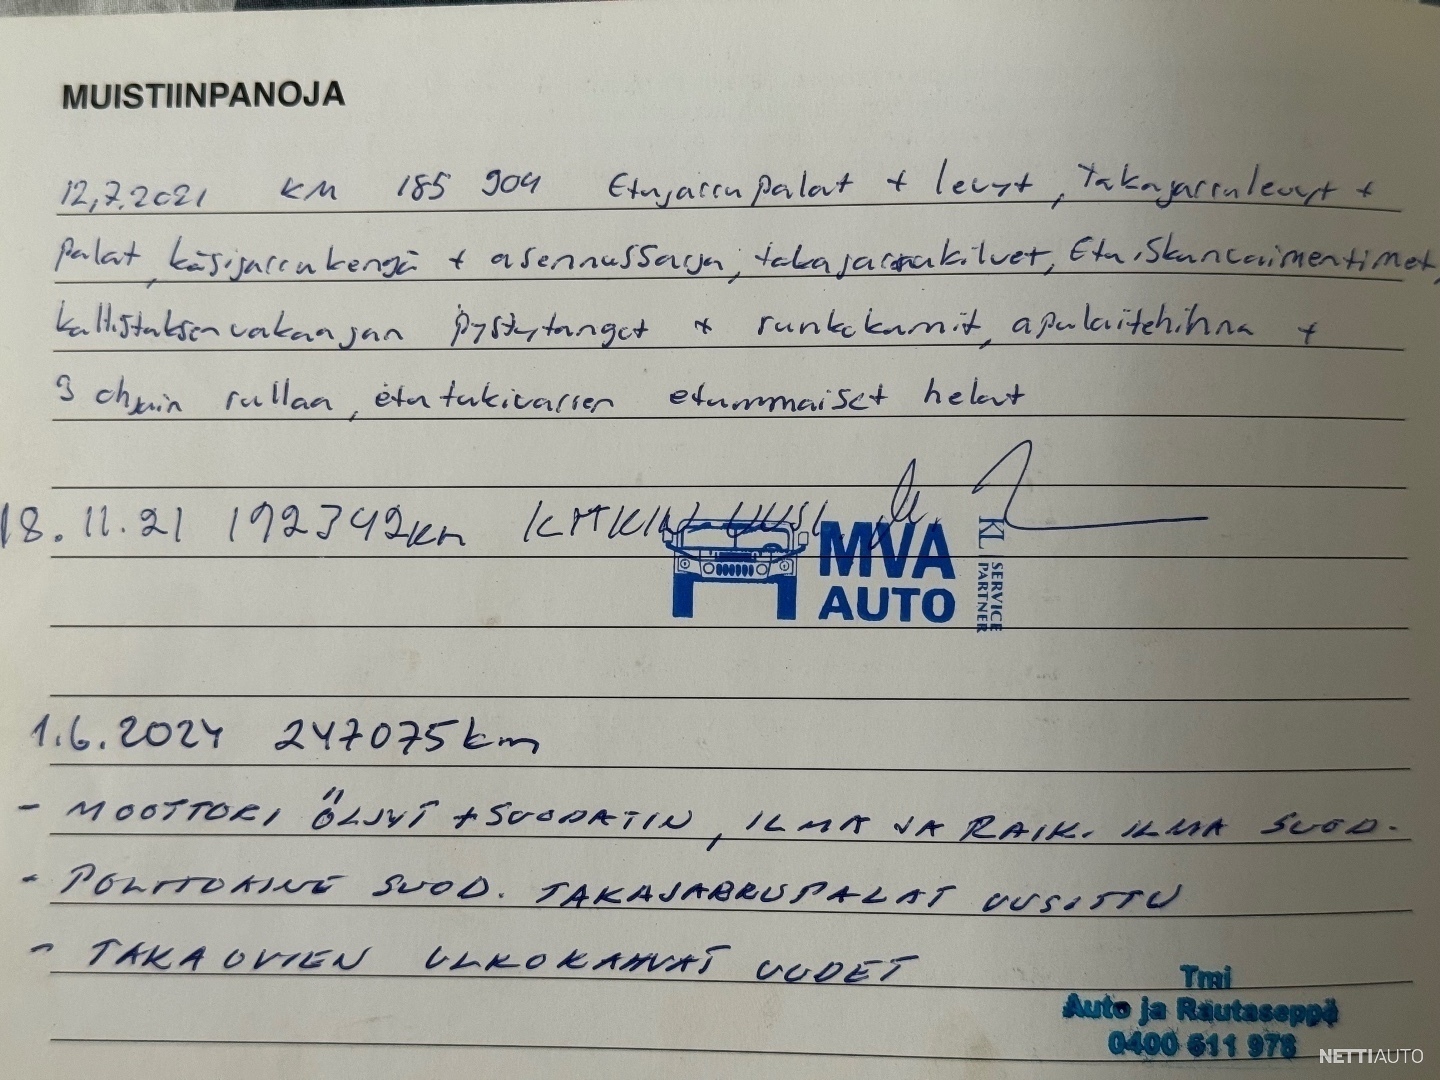 MUISTIINPANOJA
12,7.2021 KM 185 904 Etujarrupalat + levyt, Takajarrulevyt +
palat, käsijarrukengä + asennussarja, takajarrukilvet, Etuiskunvaimentimet,
kallistuksenvakaajan pystytangot + runkokumit, apulaitehihna +
3 ohjain rullaa, etutukivarsien etummaiset helat
18.11.21 192342km KYTKIN UUSI.
MVA
AUTO
KL SERVICE
PARTNER
1.6.2024 247075km
- MOOTTORI ÖLJYT + SUODATIN, ILMA JA RAIK. ILMA SUOD.
- POLTTOAINE SUOD. TAKAJARRUPALAT UUSITTU
- TAKAOVIEN ULKOKAHVAT UUDET
Tmi
Auto ja Rautaseppä
0400 611 978
NETTIAUTO